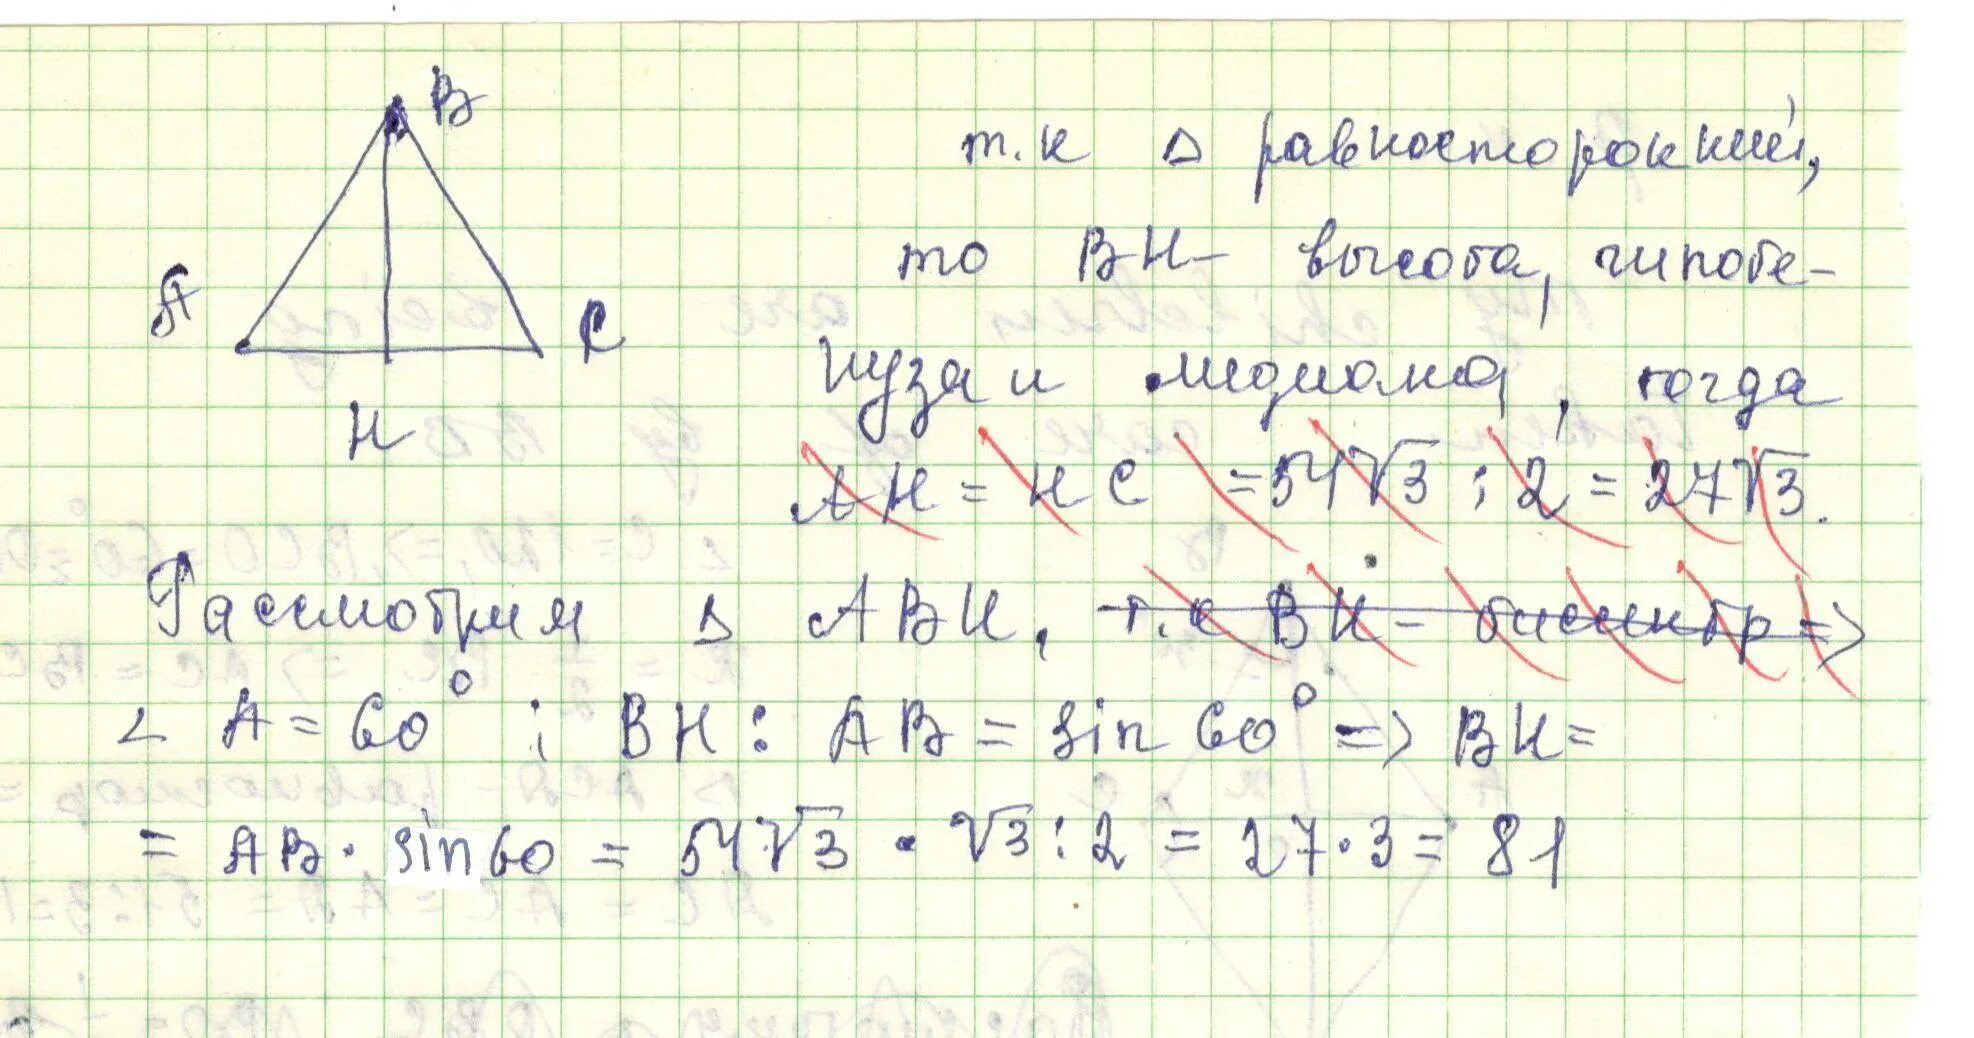 B
A
C
H
т.к Δ равносторонний,
то BH – высота, гипоте-
нуза и медиана, тогда
AH = HC = 54√3 : 2 = 27√3.
Рассмотрим Δ ABH, т.к BH – биссектр =>
∠ A = 60° ; BH : AB = sin 60° => BH =
= AB · sin 60 = 54√3 · √3 : 2 = 27 · 3 = 81